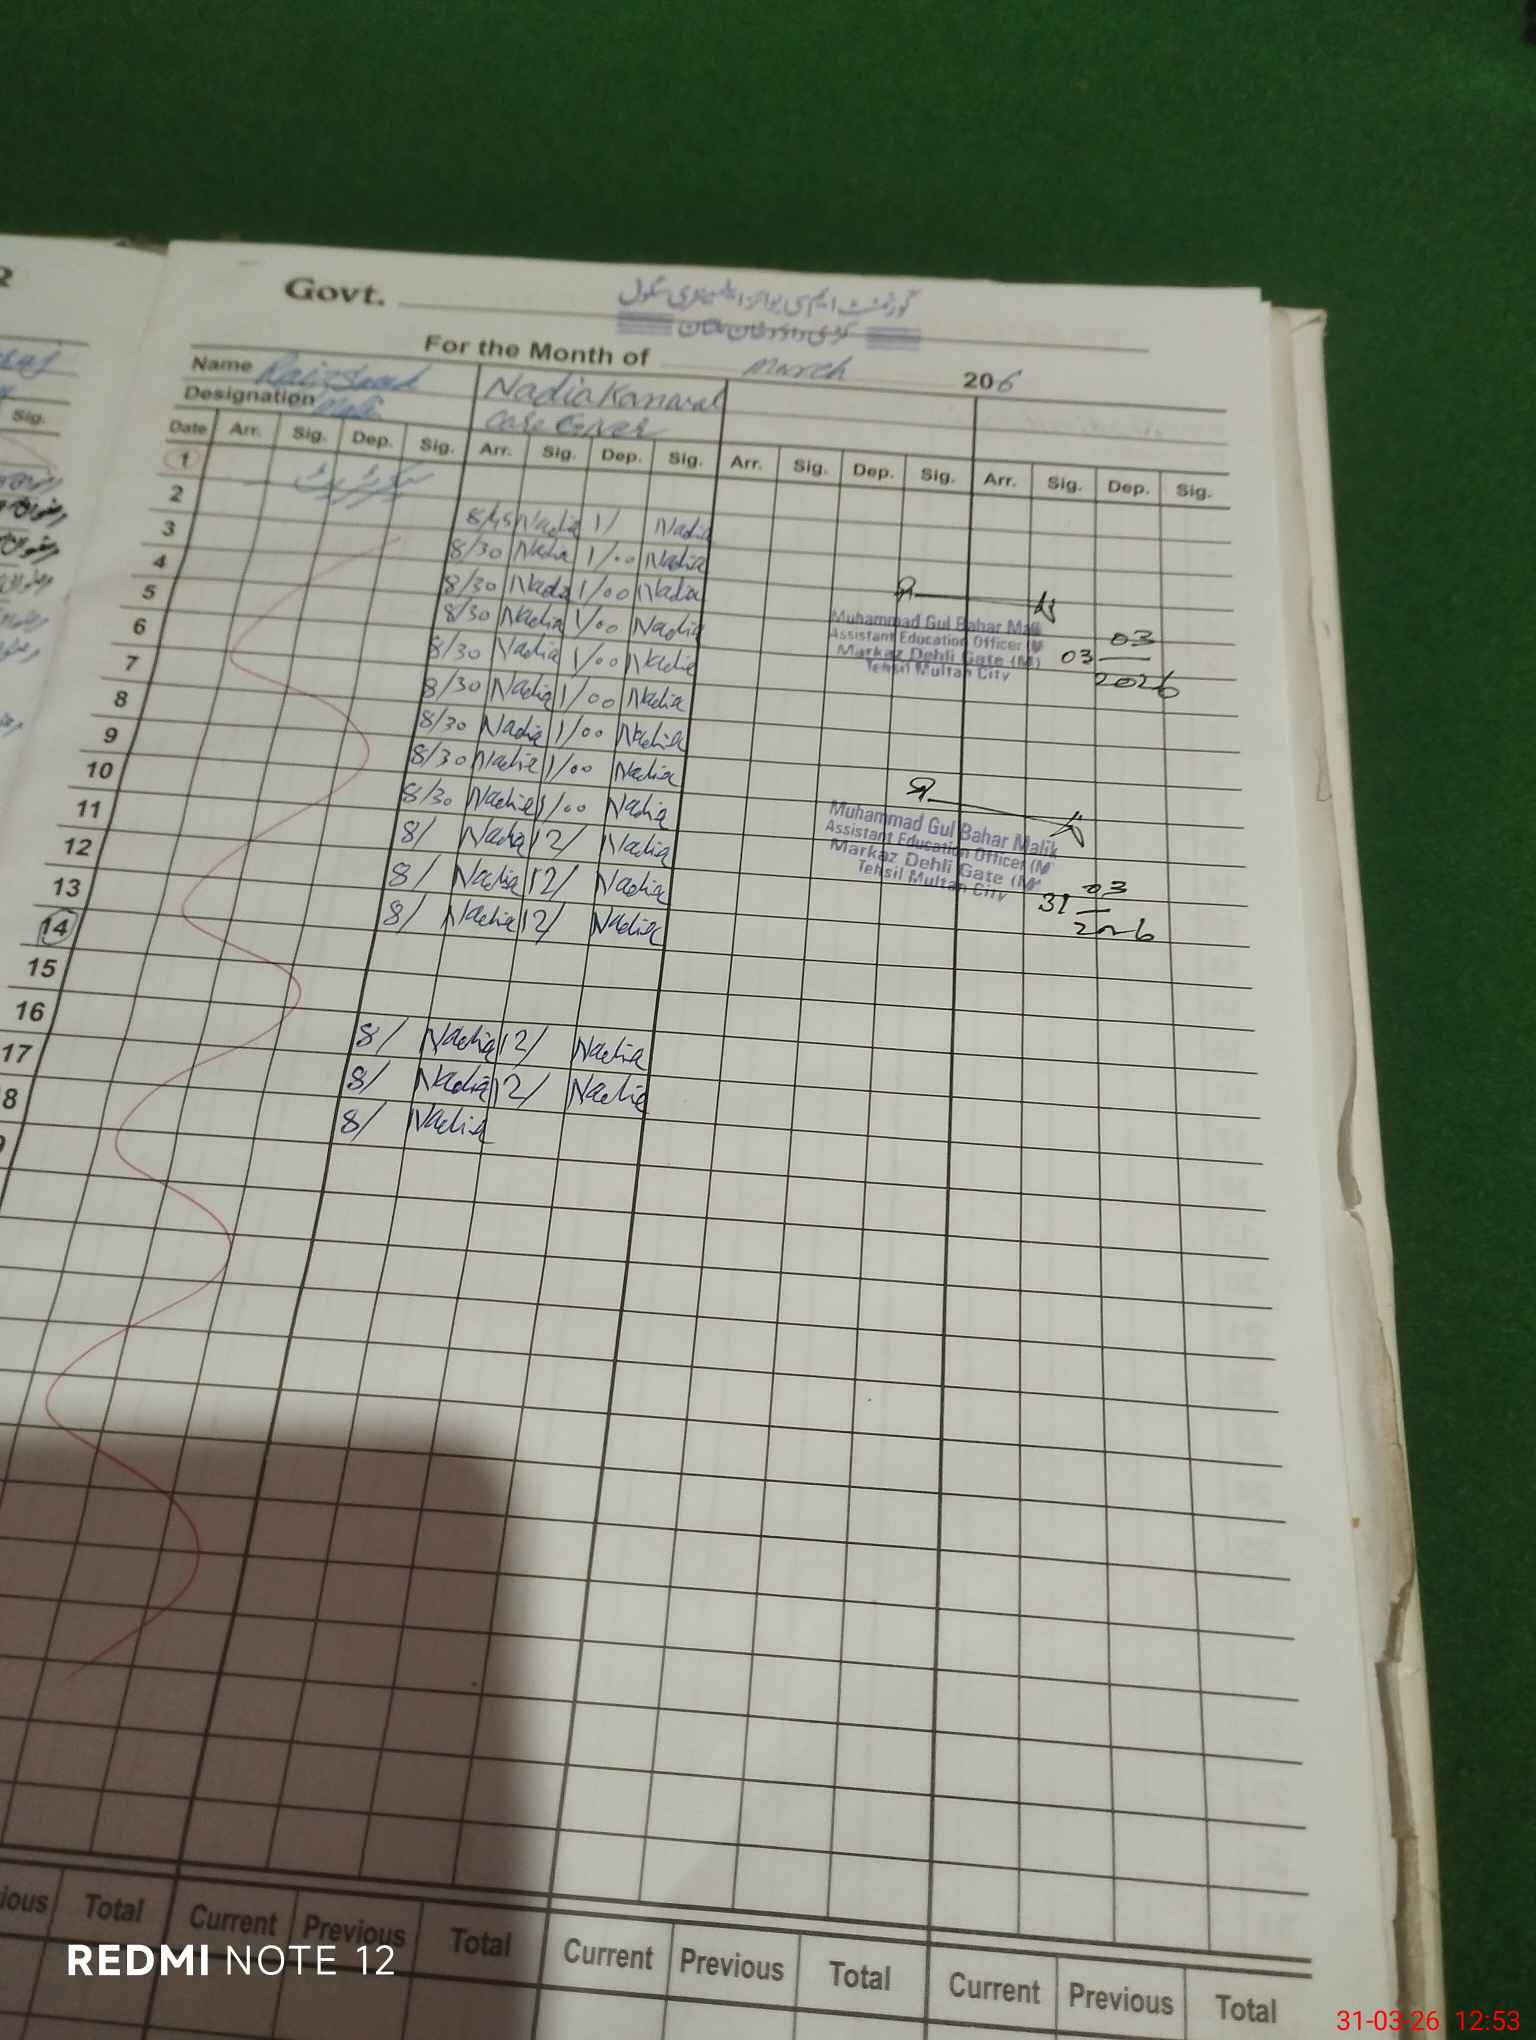 Govt.
گورنمنٹ ایم سی بوائز ایلیمنٹری سکول
For the Month of March 206
Name Nadia Kanwal
Designation Care Giver
Date Arr. Sig. Dep. Sig. Arr. Sig. Dep. Sig. Arr. Sig. Dep. Sig. Arr. Sig. Dep. Sig.
Sig.
1
2
3 8/45 Nadia 1/ Nadia
4 8/30 Nadia 1/00 Nadia
5 8/30 Nadia 1/00 Nadia
6 8/30 Nadia 1/00 Nadia
7 8/30 Nadia 1/00 Nadia
8 8/30 Nadia 1/00 Nadia
9 8/30 Nadia 1/00 Nadia
10 8/30 Nadia 1/00 Nadia
11 8/30 Nadia 1/00 Nadia
12 8/ Nadia 12/ Nadia
13 8/ Nadia 12/ Nadia
14 8/ Nadia 12/ Nadia
15
16
17 8/ Nadia 12/ Nadia
8 8/ Nadia 12/ Nadia
8/ Nadia
Muhammad Gul Bahar Mali
Assistant Education Officer (M
Markaz Dehli Gate (M)
Tehsil Multan City
03 03
2026
Muhammad Gul Bahar Malik
Assistant Education Officer (M
Markaz Dehli Gate (M
Tehsil Multan City
31 03
2026
ious Total Current Previous Total Current Previous Total Current Previous Total
REDMI NOTE 12
31-03-26 12:53